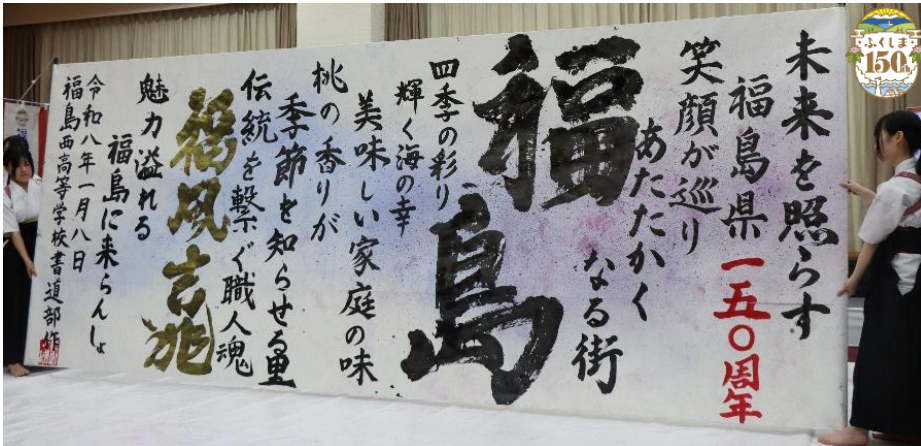 未来を照らす
福島県一五〇周年
笑顔が巡り
あたたかく
なる街
福島
四季の彩り
輝く海の幸
美味しい家庭の味
桃の香りが
季節を知らせる里
伝統を繋ぐ職人魂
福風吉兆
魅力溢れる
福島に来らんしょ
令和八年一月八日
福島西高等学校書道部作
ふくしま
150